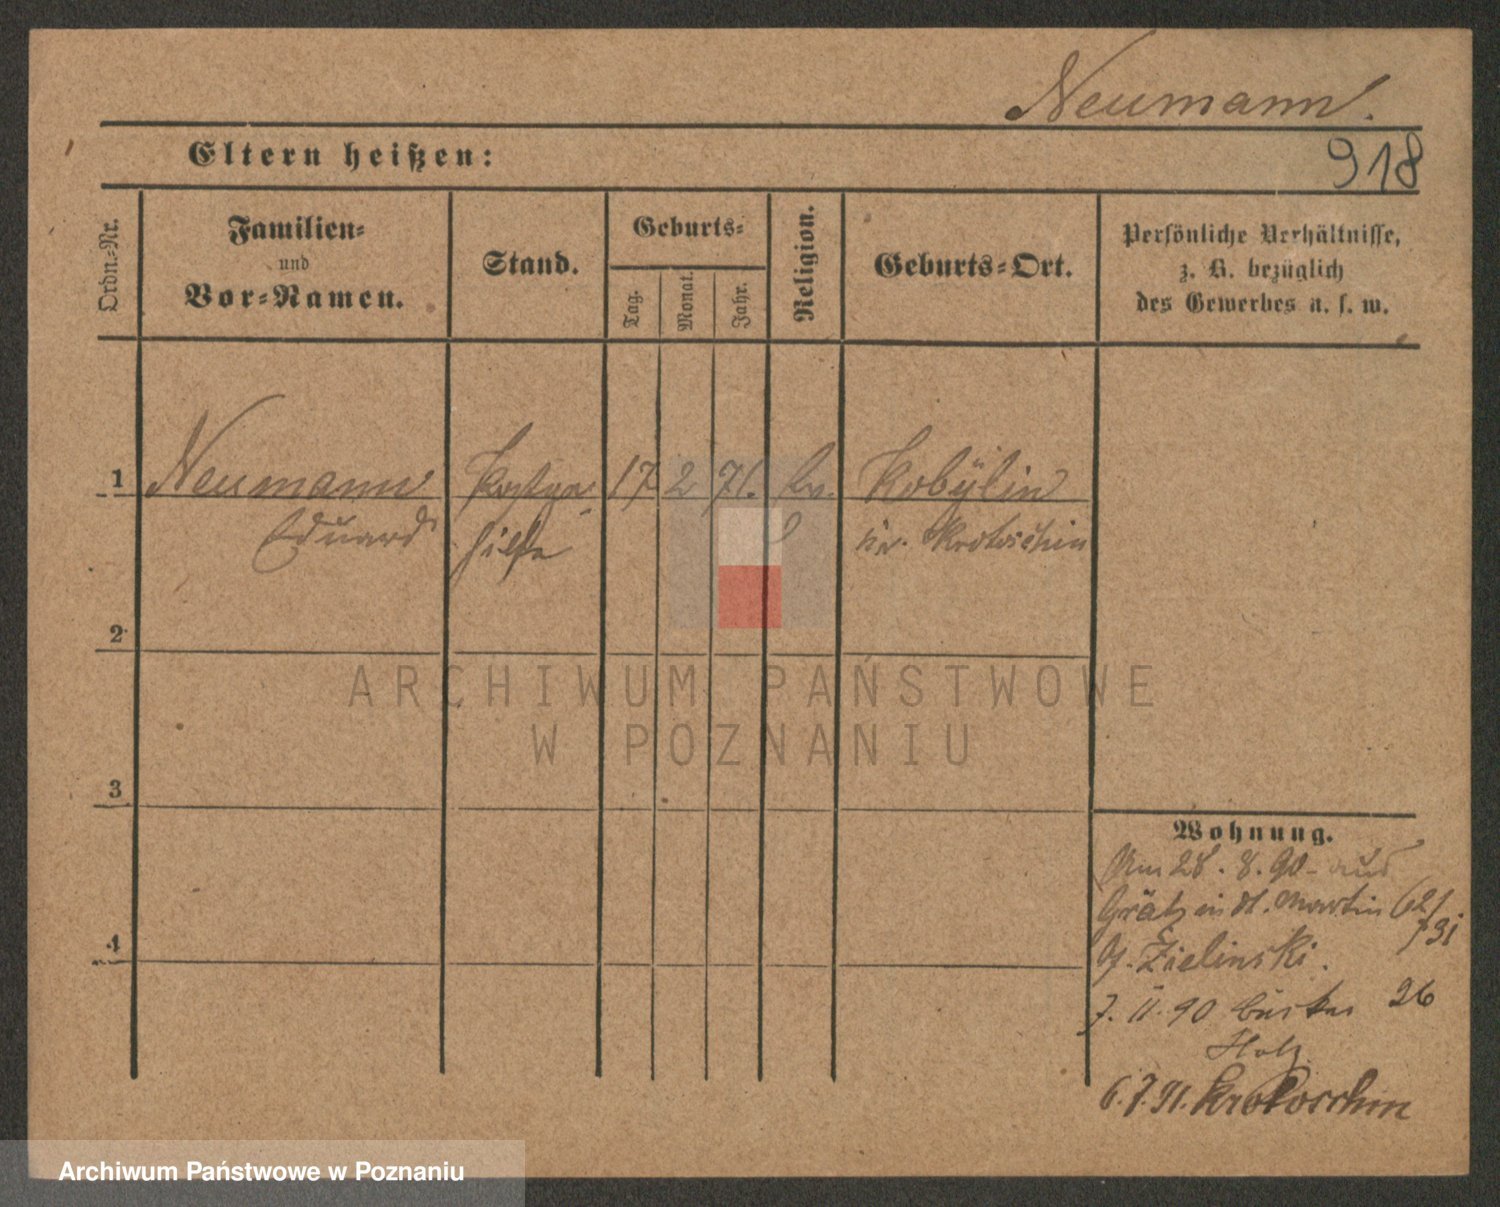 Neumann.
918
Eltern heißen:
Ordn.-Nr.
Familien-
und
Vor-Namen.
Stand.
Geburts-
Tag.
Monat.
Jahr.
Religion.
Geburts-Ort.
Persönliche Verhältnisse,
z. B. bezüglich
des Gewerbes u. s. w.
1 Neumann 17 2 71. Ev. Kobylin
Eduard Kr. Krotoschin
2
3
4
Wohnung.
Am 28. 8. 90 - aus
Grätz in St. Martin 62/
b. Zielinski.
7. 11. 90 26
6. 7. 91. Krotoschin
ARCHIWUM PAŃSTWOWE
W POZNANIU
Archiwum Państwowe w Poznaniu